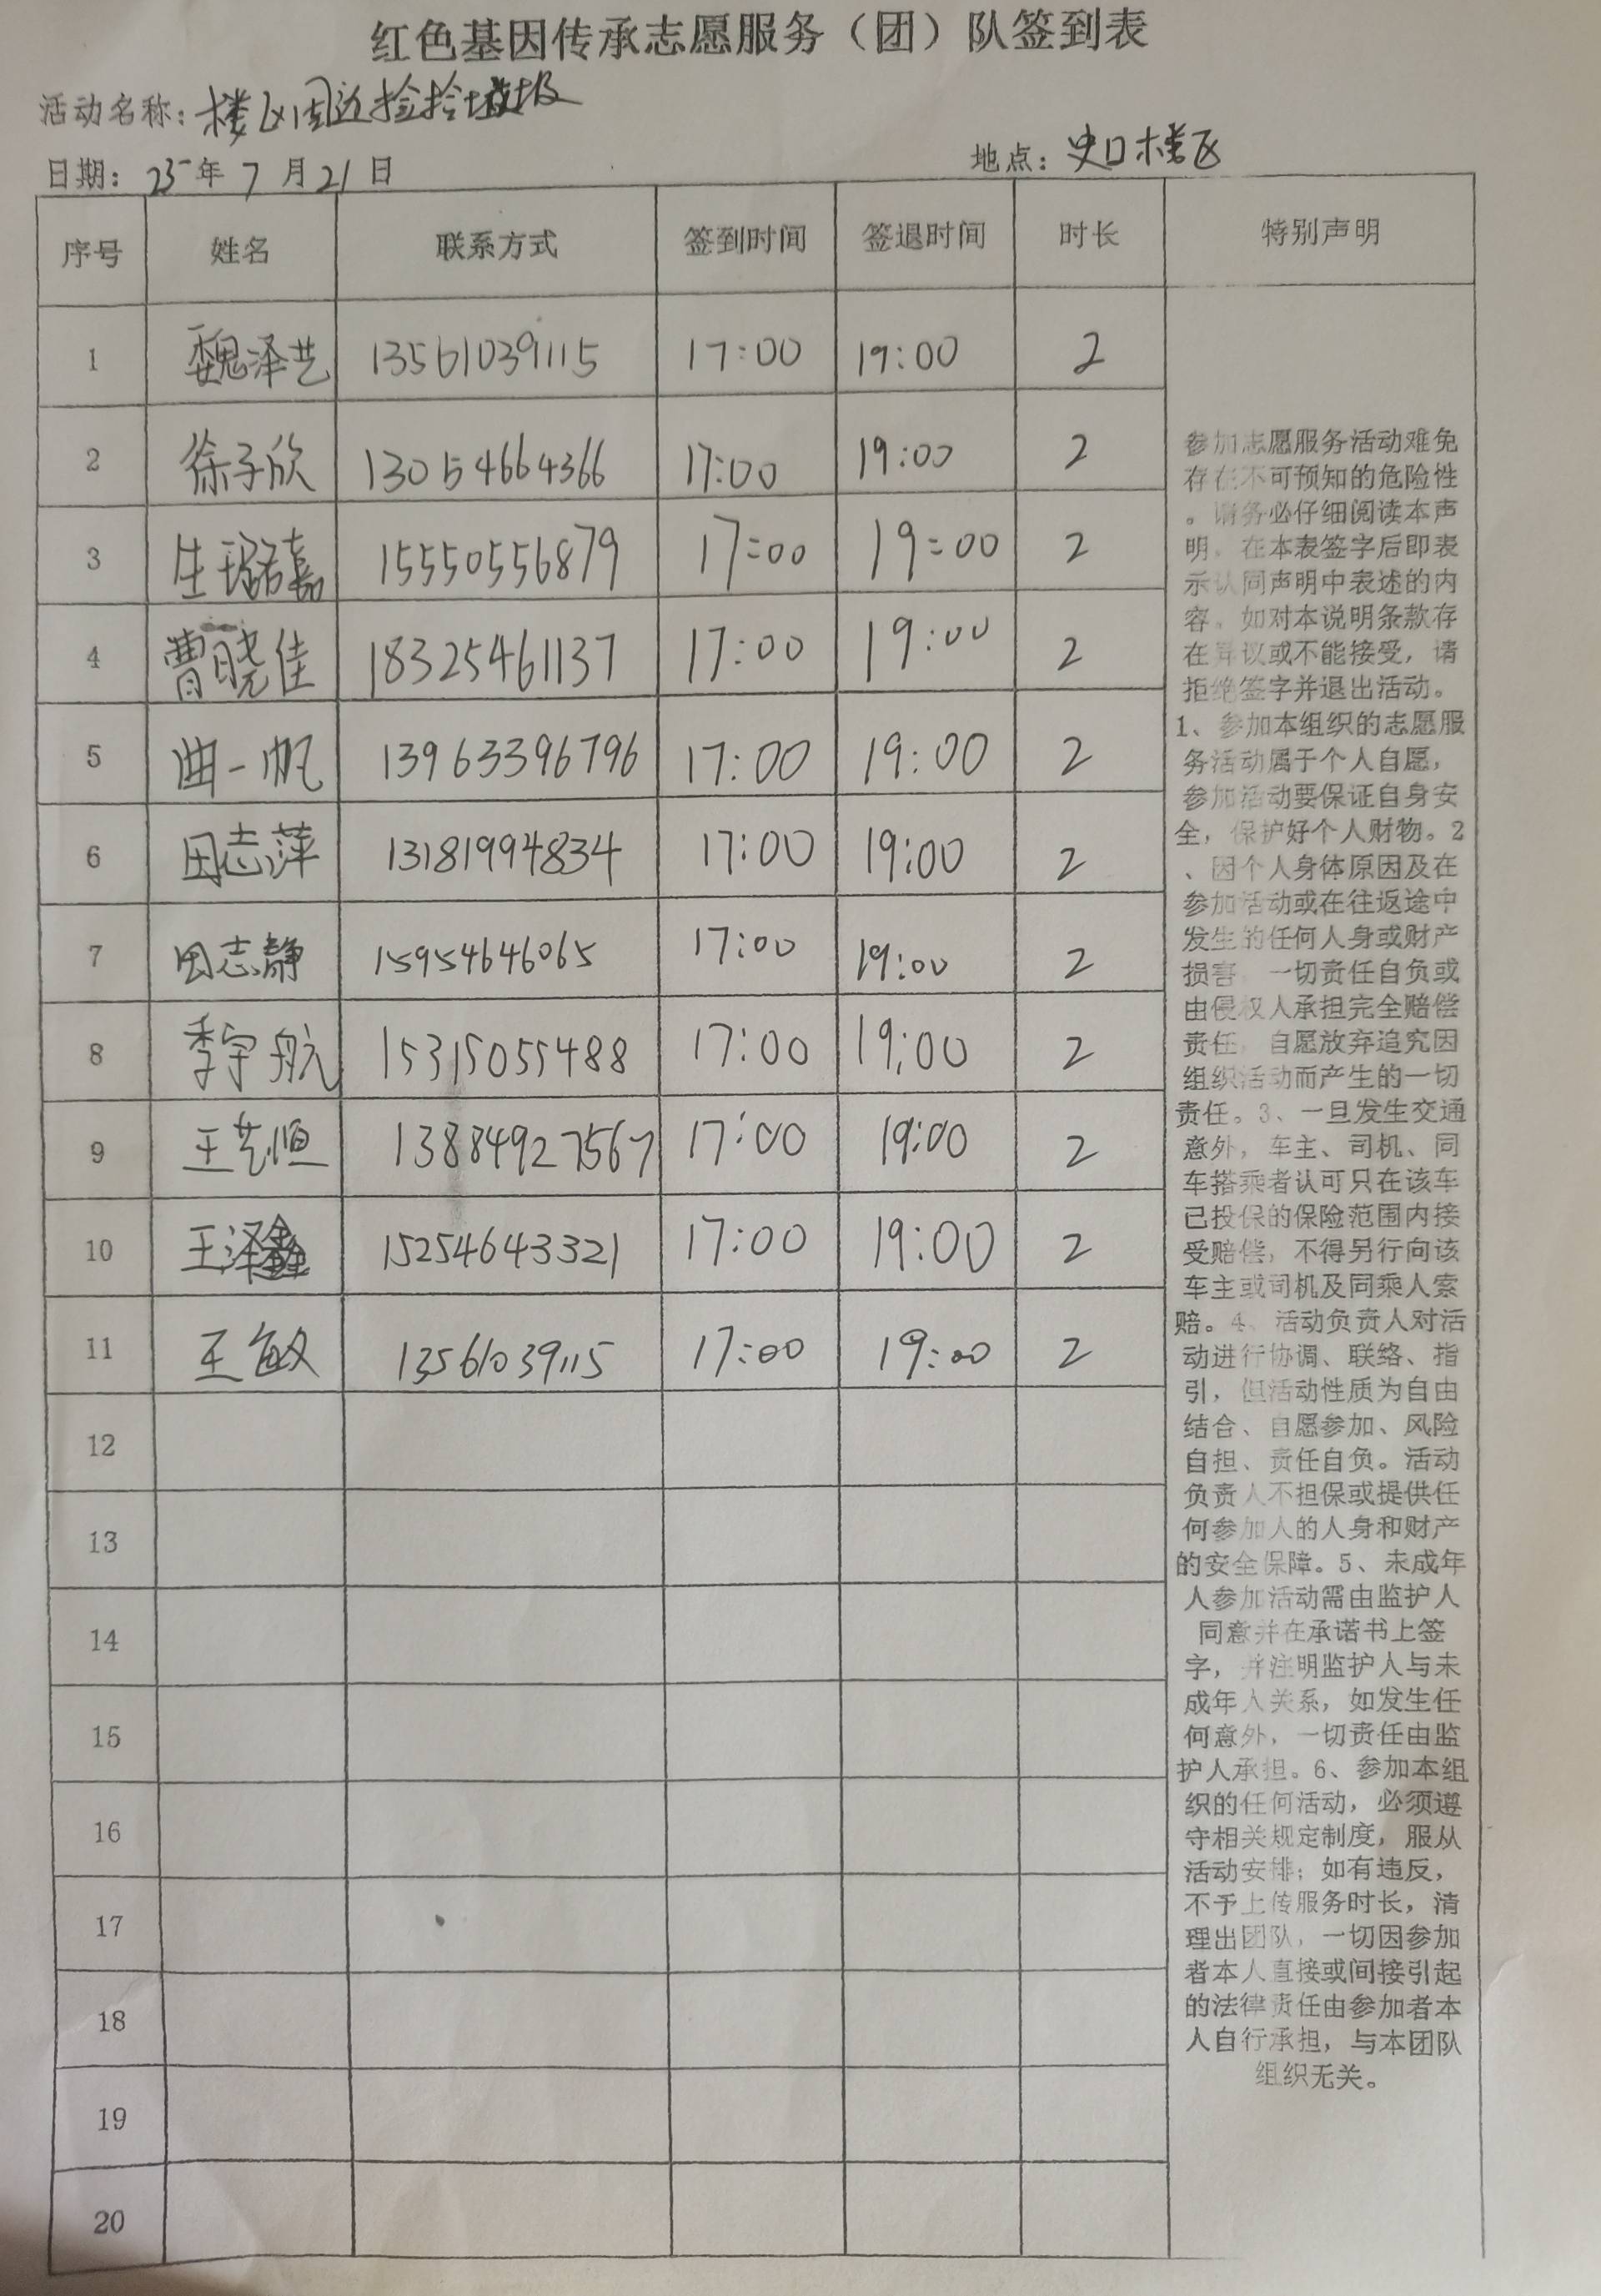 红色基因传承志愿服务（团）队签到表
活动名称：楼区周边捡拾垃圾
日期：25年7月21日 地点：史口楼区
序号 姓名 联系方式 签到时间 签退时间 时长 特别声明
1 魏泽艺 13561039115 17:00 19:00 2
2 徐子欣 13054664366 17:00 19:00 2
3 生璐嘉 15550556879 17:00 19:00 2
4 曹晓佳 18325461137 17:00 19:00 2
5 曲一帆 13963396796 17:00 19:00 2
6 田志萍 13181994834 17:00 19:00 2
7 田志静 15954646065 17:00 19:00 2
8 季宇航 15315055488 17:00 19:00 2
9 王艺恒 13884927567 17:00 19:00 2
10 王泽鑫 15254643321 17:00 19:00 2
11 王敏 13561039115 17:00 19:00 2
12
13
14
15
16
17
18
19
20
参加志愿服务活动难免
存在不可预知的危险性
。请务必仔细阅读本声
明，在本表签字后即表
示认同声明中表述的内
容。如对本说明条款存
在异议或不能接受，请
拒绝签字并退出活动。
1、参加本组织的志愿服
务活动属于个人自愿，
参加活动要保证自身安
全，保护好个人财物。2
、因个人身体原因及在
参加活动或在往返途中
发生的任何人身或财产
损害，一切责任自负或
由侵权人承担完全赔偿
责任，自愿放弃追究因
组织活动而产生的一切
责任。3、一旦发生交通
意外，车主、司机、同
车搭乘者认可只在该车
已投保的保险范围内接
受赔偿，不得另行向该
车主或司机及同乘人索
赔。4、活动负责人对活
动进行协调、联络、指
引，但活动性质为自由
结合、自愿参加、风险
自担、责任自负。活动
负责人不担保或提供任
何参加人的人身和财产
的安全保障。5、未成年
人参加活动需由监护人
同意并在承诺书上签
字，并注明监护人与未
成年人关系，如发生任
何意外，一切责任由监
护人承担。6、参加本组
织的任何活动，必须遵
守相关规定制度，服从
活动安排；如有违反，
不予上传服务时长，清
理出团队，一切因参加
者本人直接或间接引起
的法律责任由参加者本
人自行承担，与本团队
组织无关。